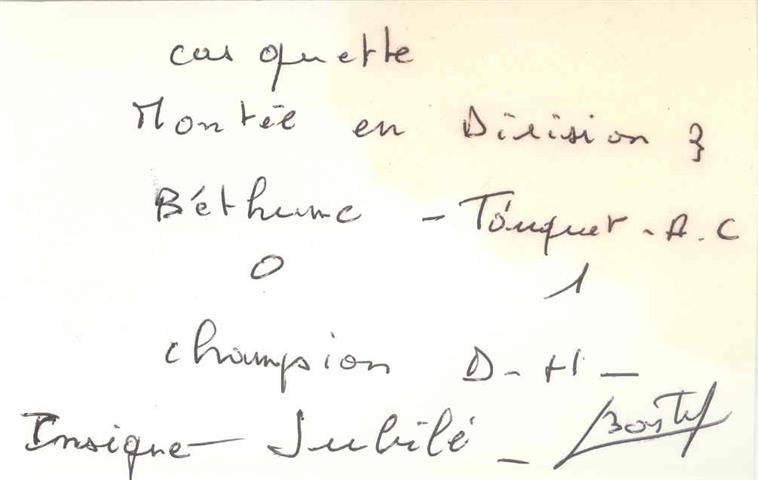 casquette
Montée en Division 3
Béthune - Touquet - A.C
0 1
champion D-H -
Insigne - Jubilé -